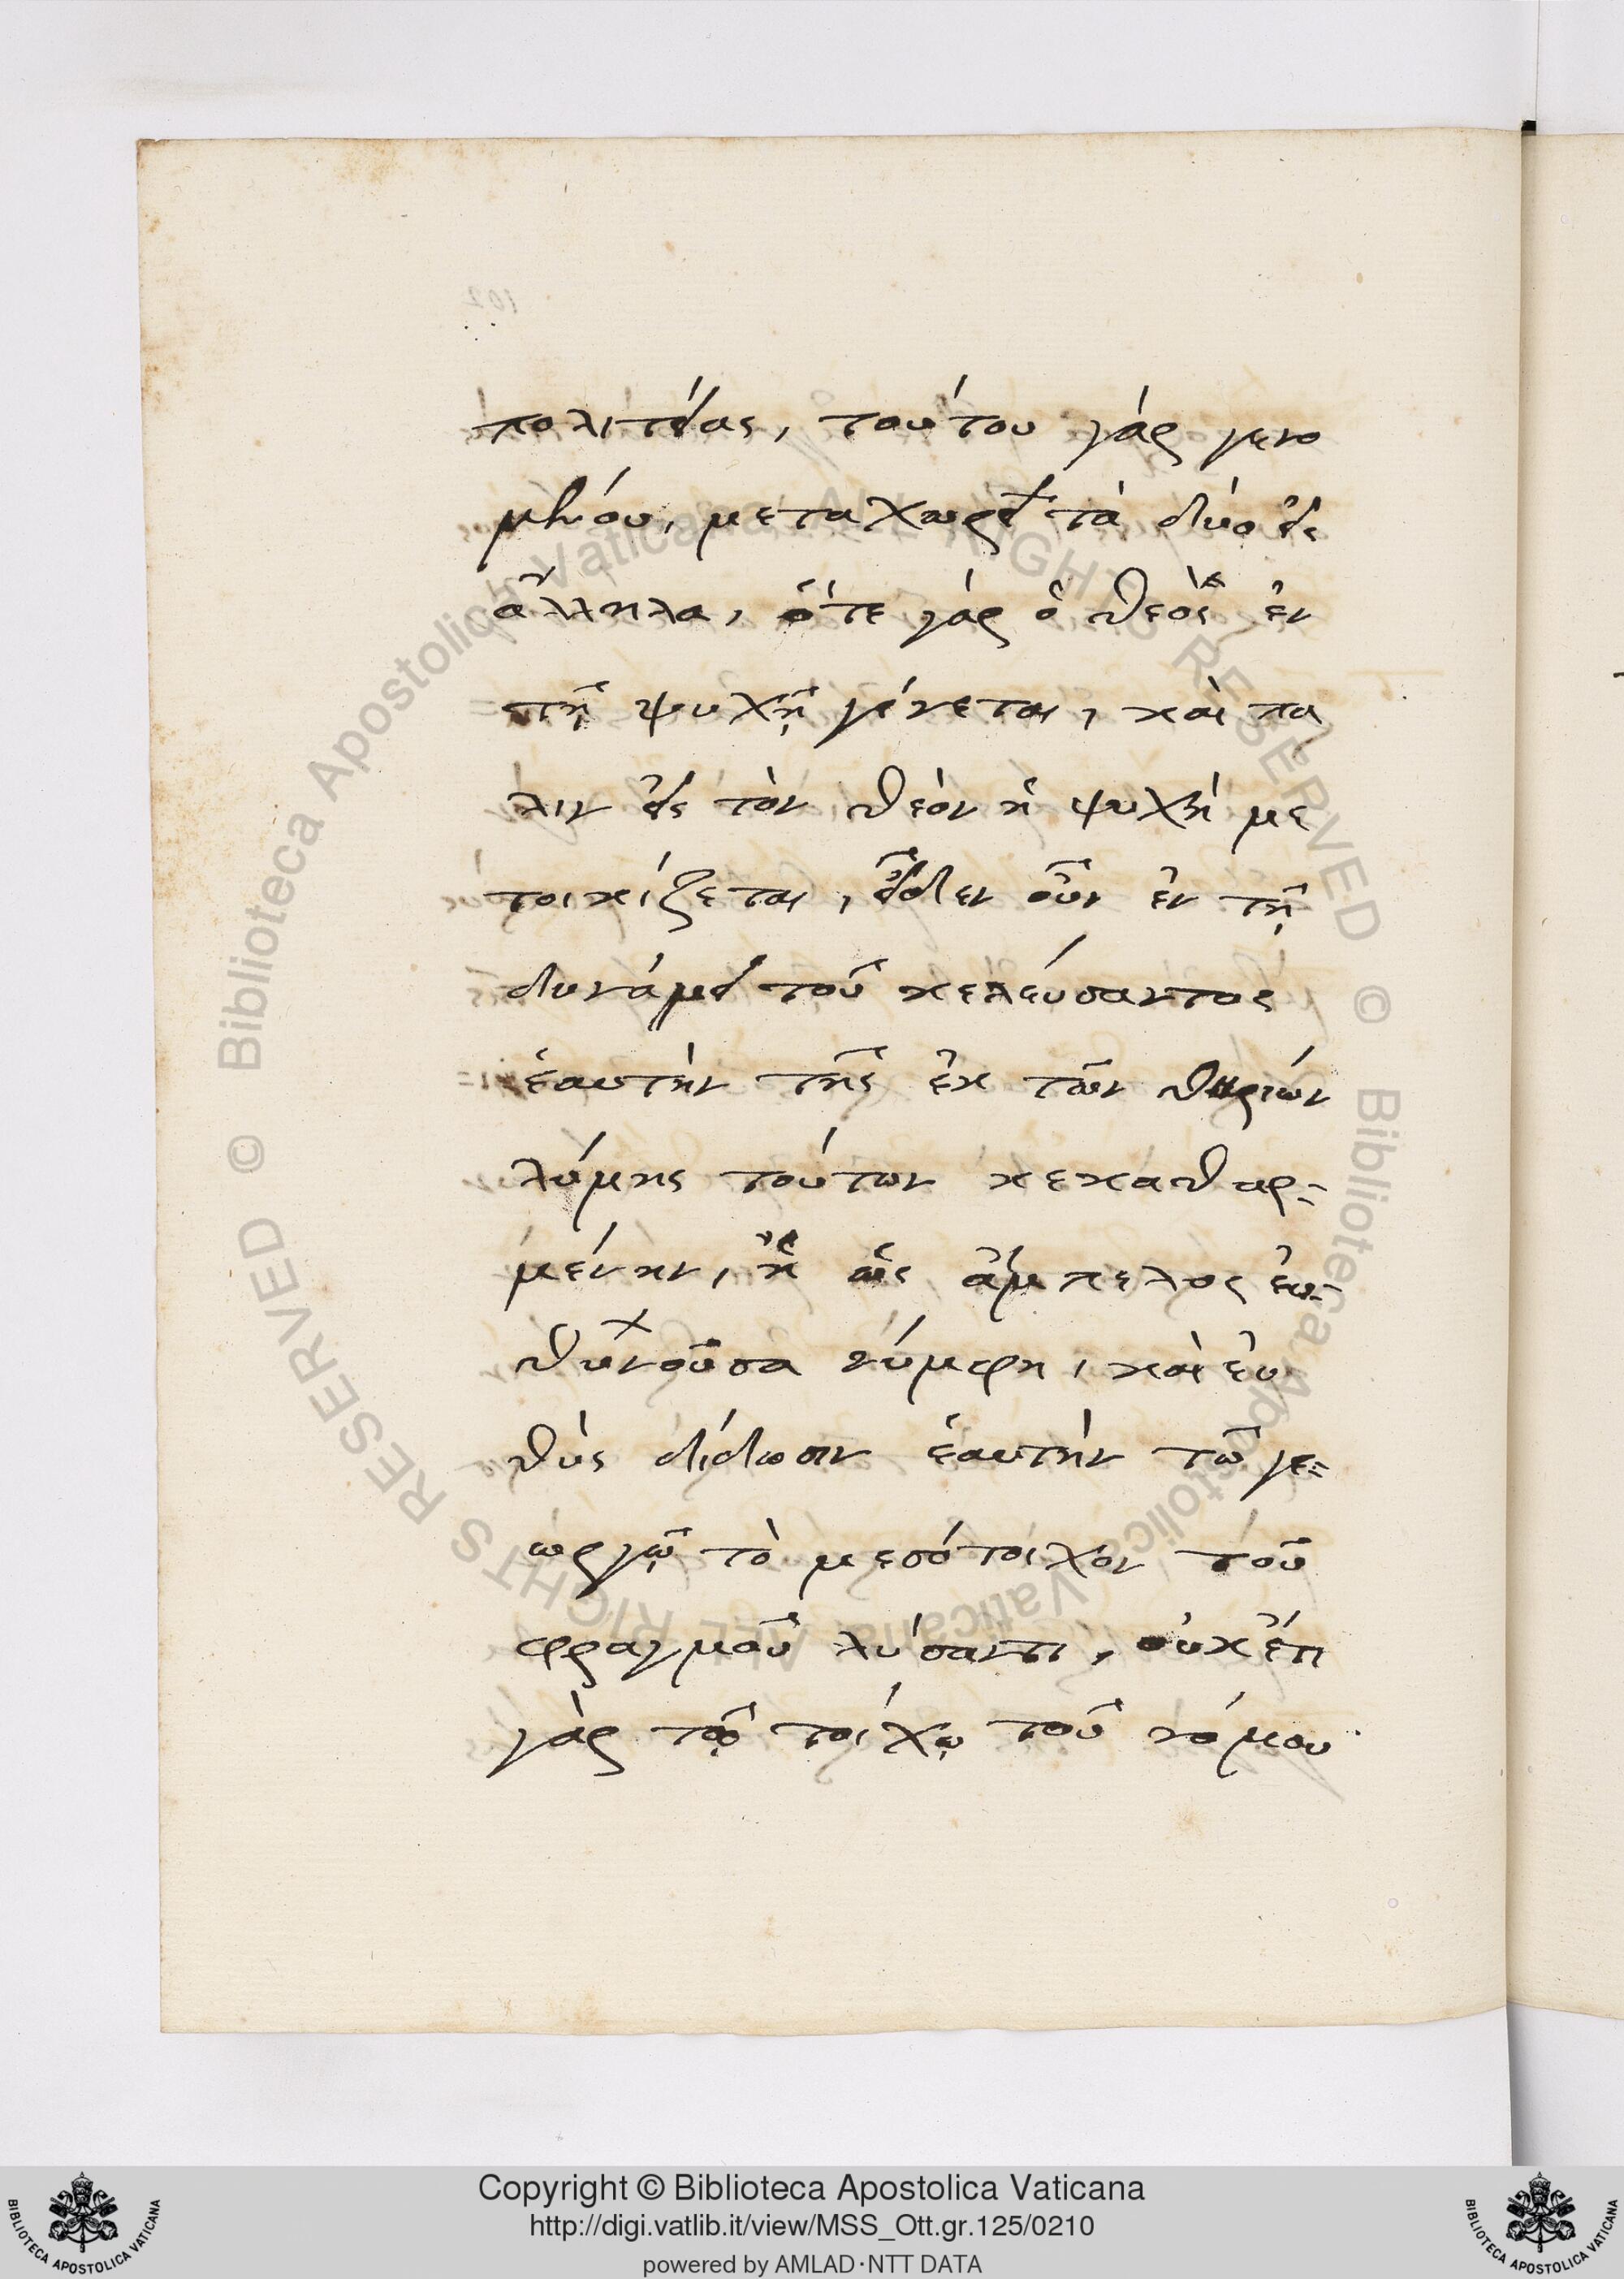 πολιτείας, τούτου γάρ γενο
μένου, μεταχωρεῖ τὰ δύο εἰς
ἄλληλα, ὅτε γάρ ὁ θεὸς ἐν
τῆ ψυχῆ γίνεται, καὶ πα
λιν εἰς τὸν θεὸν ἡ ψυχὴ με
τοικίζεται, εἶδεν οὖν ἐν τῆ
δυνάμει τοῦ κελεύσαντος
ἑαυτὴν τῆς ἐκ τῶν θηρίων
λύμης τούτων κεκαθαρ-
μένην, ἡ ὡς ἄμπελος εὐ-
θυνοῦσα νύμφη, καὶ εὐ
θὺς δίδωσιν ἑαυτὴν τῶ γε=
ωργῷ τὸ μεσότοιχον τοῦ
φραγμοῦ λύσαντι, οὐκ ἔτι
γὰρ τῷ τοίχῳ τοῦ νόμου
Biblioteca Apostolica Vaticana ALL RIGHTS RESERVED ©
Biblioteca Apostolica Vaticana ALL RIGHTS RESERVED ©
Copyright © Biblioteca Apostolica Vaticana
http://digi.vatlib.it/view/MSS_Ott.gr.125/0210
powered by AMLAD·NTT DATA
BIBLIOTECA APOSTOLICA VATICANA
BIBLIOTECA APOSTOLICA VATICANA